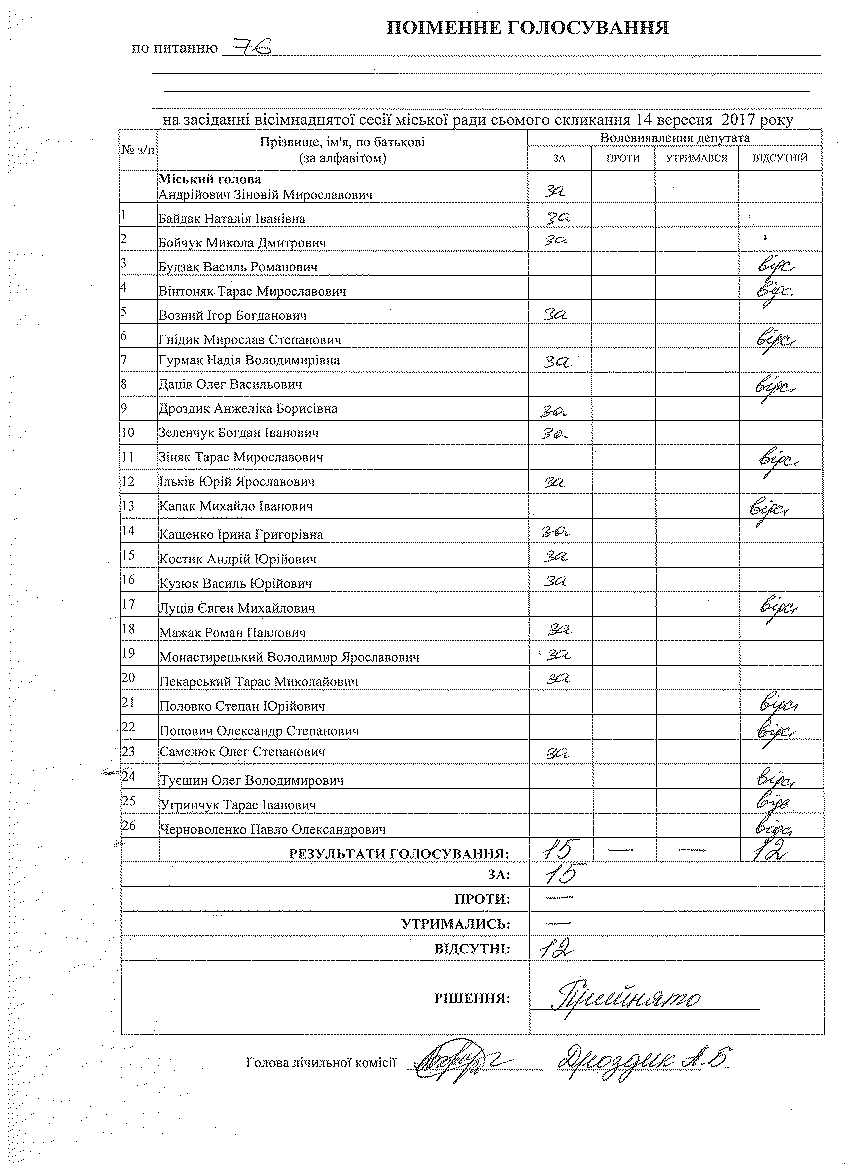 ПОІМЕННЕ ГОЛОСУВАННЯ
по питанню 76
на засіданні вісімнадцятої сесії міської ради сьомого скликання 14 вересня 2017 року
№ з/п Прізвище, ім'я, по батькові (за алфавітом) Волевиявлення депутата
ЗА ПРОТИ УТРИМАВСЯ ВІДСУТНІЙ
Міський голова
Андрійович Зіновій Мирославович за
1 Байдак Наталія Іванівна за
2 Бойчук Микола Дмитрович за
3 Будзак Василь Романович відс.
4 Вінтоняк Тарас Мирославович відс.
5 Возний Ігор Богданович за
6 Гнідик Мирослав Степанович відс.
7 Гурмак Надія Володимирівна за
8 Даців Олег Васильович відс.
9 Дроздик Анжеліка Борисівна за
10 Зеленчук Богдан Іванович за
11 Зіняк Тарас Мирославович відс.
12 Ільків Юрій Ярославович за
13 Капак Михайло Іванович відс.
14 Кащенко Ірина Григорівна за
15 Костик Андрій Юрійович за
16 Кузюк Василь Юрійович за
17 Луців Євген Михайлович відс.
18 Мажак Роман Павлович за
19 Монастирецький Володимир Ярославович за
20 Пекарський Тарас Миколайович за
21 Половко Степан Юрійович відс.
22 Попович Олександр Степанович відс.
23 Самелюк Олег Степанович за
24 Туєшин Олег Володимирович відс.
25 Угринчук Тарас Іванович відс
26 Черноволенко Павло Олександрович відс.
РЕЗУЛЬТАТИ ГОЛОСУВАННЯ: 15 — — 12
ЗА: 15
ПРОТИ: —
УТРИМАЛИСЬ: —
ВІДСУТНІ: 12
РІШЕННЯ: Прийнято
Голова лічильної комісії Дроздик А.Б.